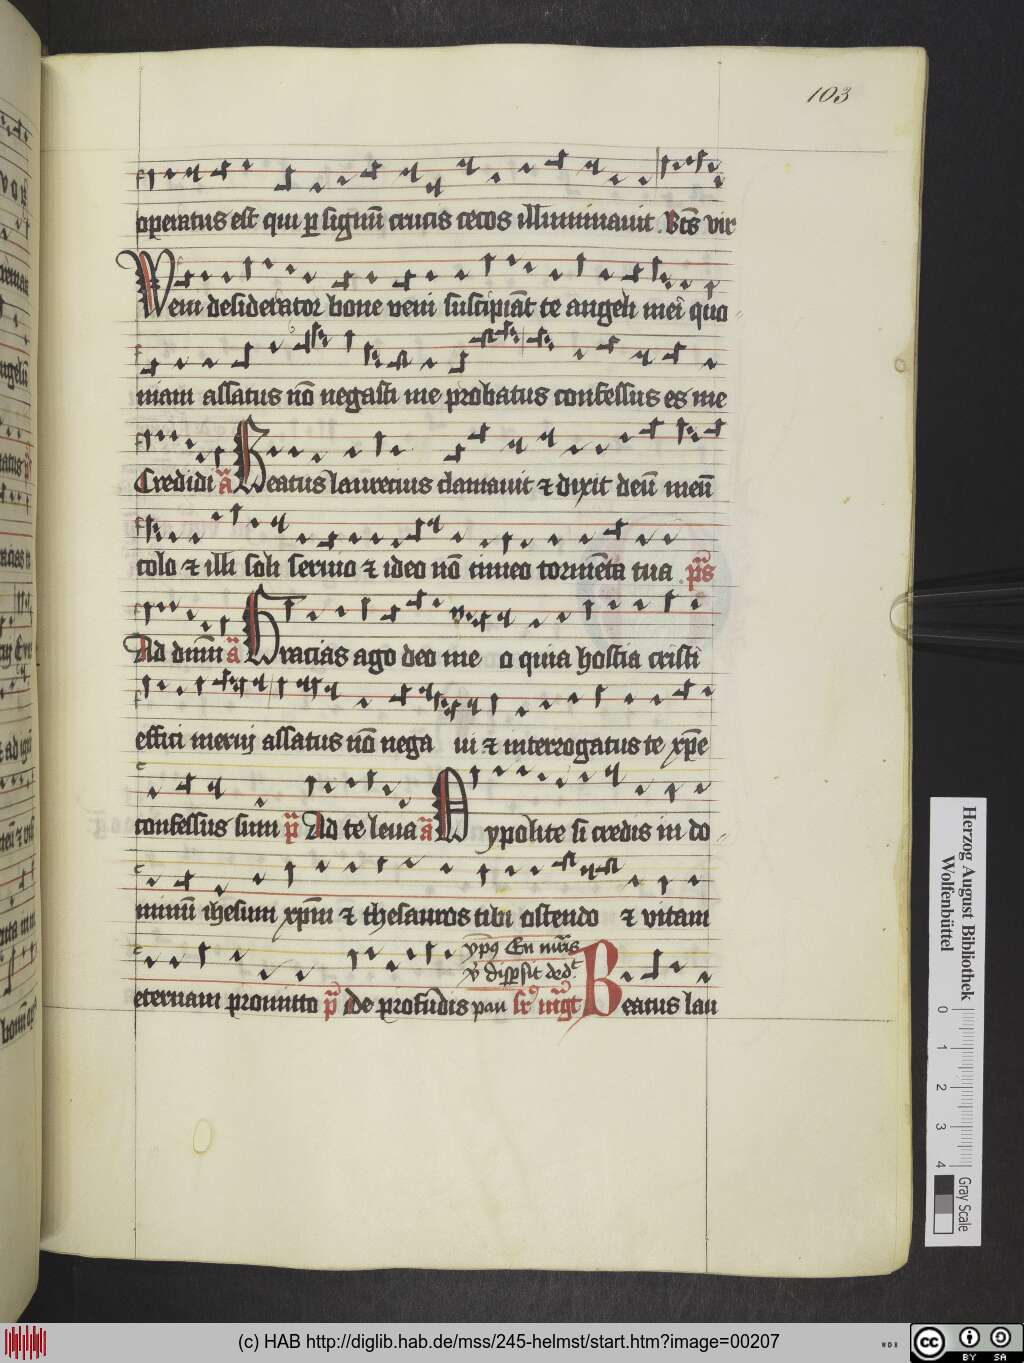 103
operatus est qui p signū crucis cecos illuminauit . Bt̄s vir
Veni desiderator bone veni suscipiāt te angeli mei quo
niam assatus nō negasti me probatus confessus es me
Credidi a Beatus laurencius clamauit ⁊ dixit deū meū
colo ⁊ illi soli seruio ⁊ ideo nō timeo tormēta tua ps̄
Ad dn̄m a Gracias ago deo me o quia hostia cristi
effici merui assatus nō nega ui ⁊ interrogatus te xp̄e
confessus sum p̄ Ad te leua a Ypolite si credis in do
minū ihesum xp̄m ⁊ thesauros tibi ostendo ⁊ vitam
ypꝯ En
v̄ dispersit ded
eternam promitto p̄ De profūdis Beatus lau
Herzog August Bibliothek
Wolfenbüttel
0 1 2 3 4
Gray Scale
(c) HAB http://diglib.hab.de/mss/245-helmst/start.htm?image=00207
WDB
cc BY SA